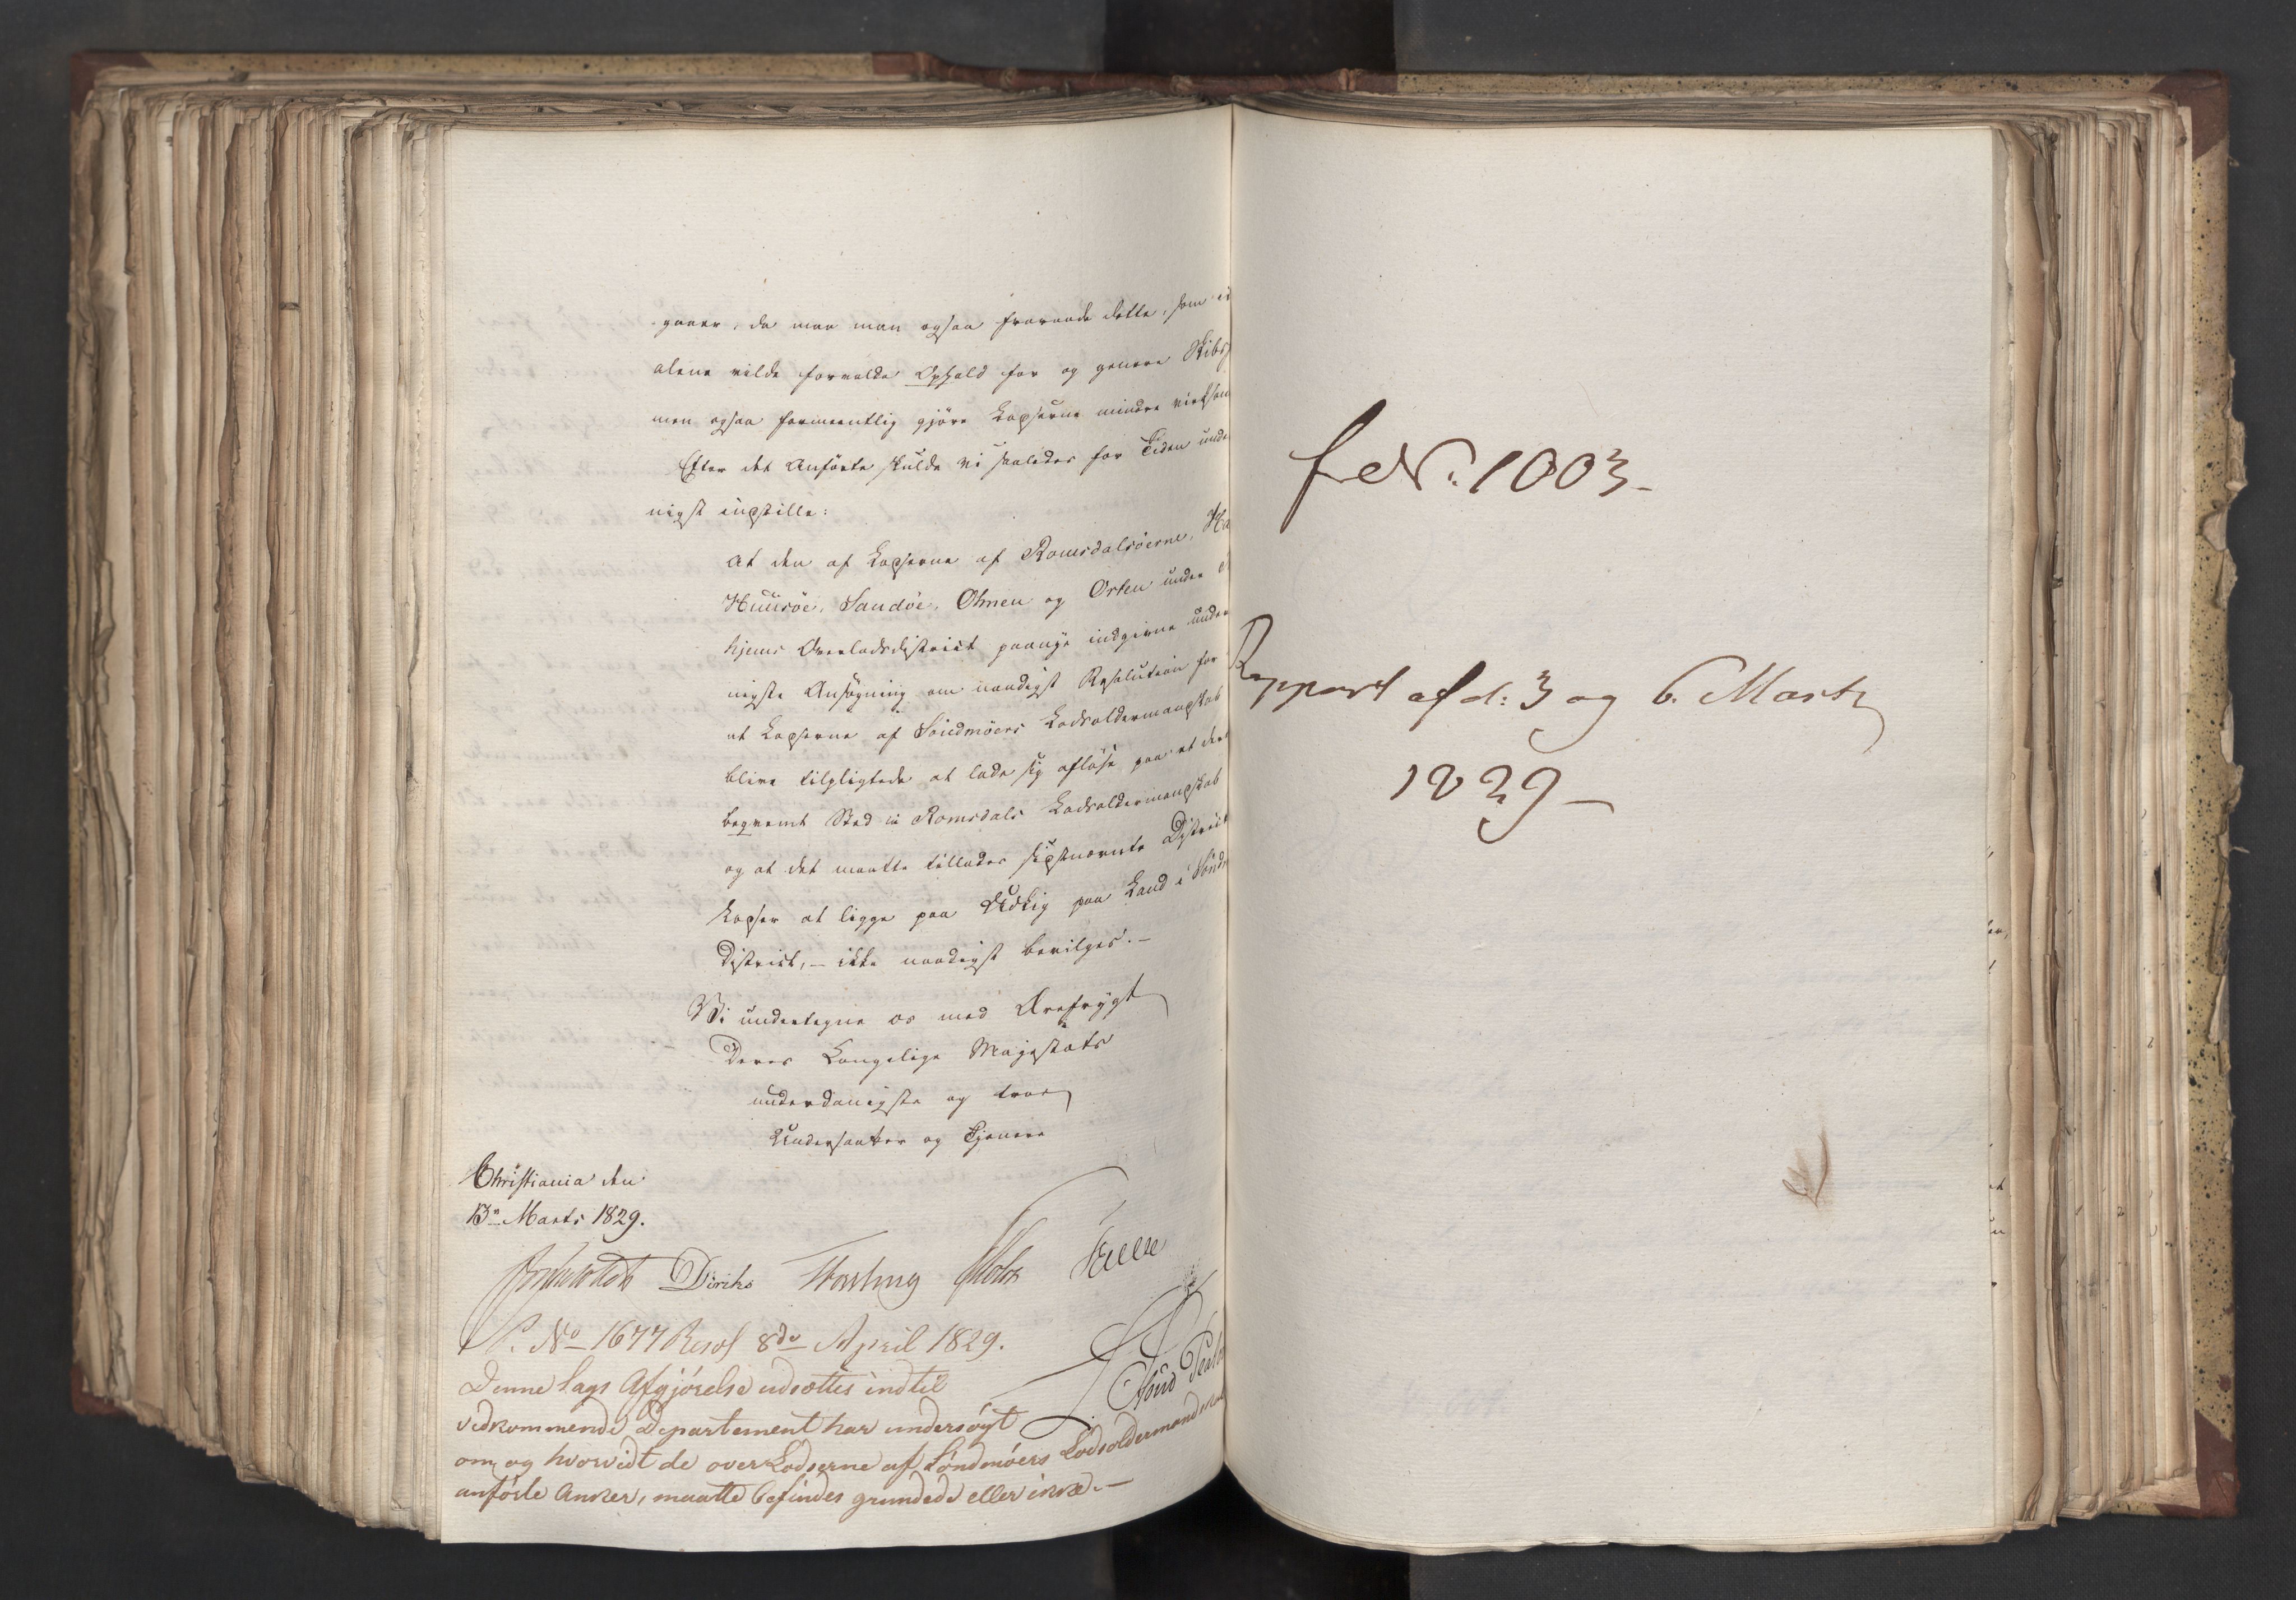 gaaer, da maa man ogsaa fraraade dette, som ei
alene vilde forvolde Ophold for og genere Skibs
men ogsaa formeentlig gjöre Lodserne mindre virksom
Efter det Anförte skulde vi saaledes for Tiden unde
nigst indstille:
At den af Lodserne af Romsdalsöerne, Ha
Huusöe, Sandöe, Ohnen og Orten under
hjems Overlodsdistrict paanye indgivne under
nigste Ansögning om naadigst Resolution for
at Lodserne af Söndmöers Lodsoldermandskab
blive tilpligtede at lade sig aflöse paa et dert
beqvemt Sted i Romsdals Lodsoldermandskab
og at det maatte tillades sidstnævnte Districts
Lodser at ligge paa Udkig paa Land i Söndm
District, – ikke naadigst bevilges. –
Vi undertegne os med Ærefrygt
Deres Kongelige Majestæts
underdanigste og troe
Undersaatter og Tjenere
Christiania den
13de Marts 1829.
Diriks Motz
P. No 1677 Resol 8de April 1829.
Denne Sags Afgjörelse udsættes indtil
vedkommende Departement har undersögt
om og hvorvidt de over Lodserne af Söndmöers Lodsoldermandskab
anförte Anker, maatte befindes grundede eller ikke. –
No. 1003 –
Rapport af d: 3 og 6. Marts
1829 –